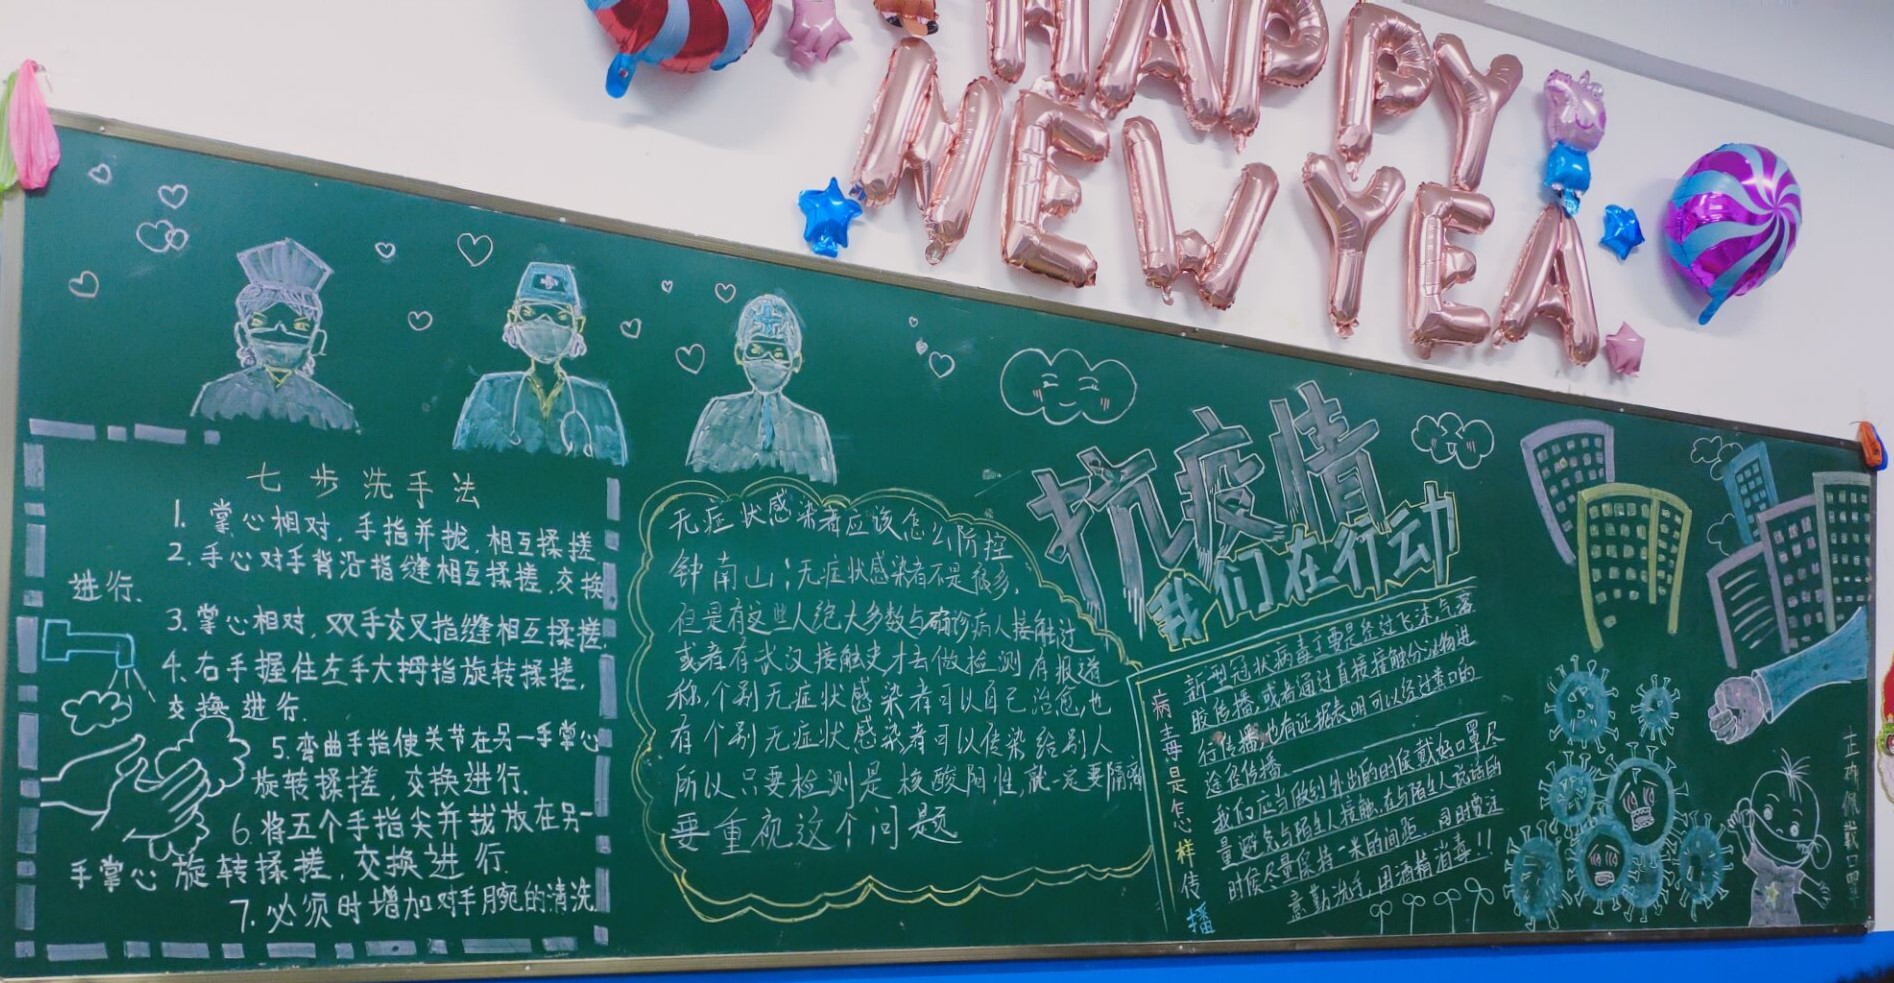 HAPPY
NEW YEA
七步洗手法
1. 掌心相对，手指并拢，相互揉搓
2. 手心对手背沿指缝相互揉搓，交换
进行.
3. 掌心相对，双手交叉指缝相互揉搓，
4. 右手握住左手大拇指旋转揉搓，
交换进行.
5. 弯曲手指使关节在另一手掌心
旋转揉搓，交换进行.
6. 将五个手指尖并拢放在另一
手掌心旋转揉搓，交换进行.
7. 必须时增加对手腕的清洗
无症状感染者应该怎么防控
钟南山：无症状感染者不是很多，
但是有这些人绝大多数与确诊病人接触过
或者有武汉接触史才去做检测 有报道
称，个别无症状感染者可以自己治愈，也
有个别无症状感染者可以传染给别人
所以只要检测是核酸阳性，就一定要隔离
要重视这个问题
抗疫情
我们在行动
病毒是怎样传播
新型冠状病毒主要是经过飞沫，气溶
胶传播，或者通过直接接触分泌物进
行传播，也有证据表明可以经过粪口的
途径传播.
我们应当做到外出的时候戴好口罩尽
量避免与陌生人接触，在与陌生人说话的
时候尽量保持一米的间距，同时要注
意勤洗手，用酒精消毒!!
正确佩戴口罩